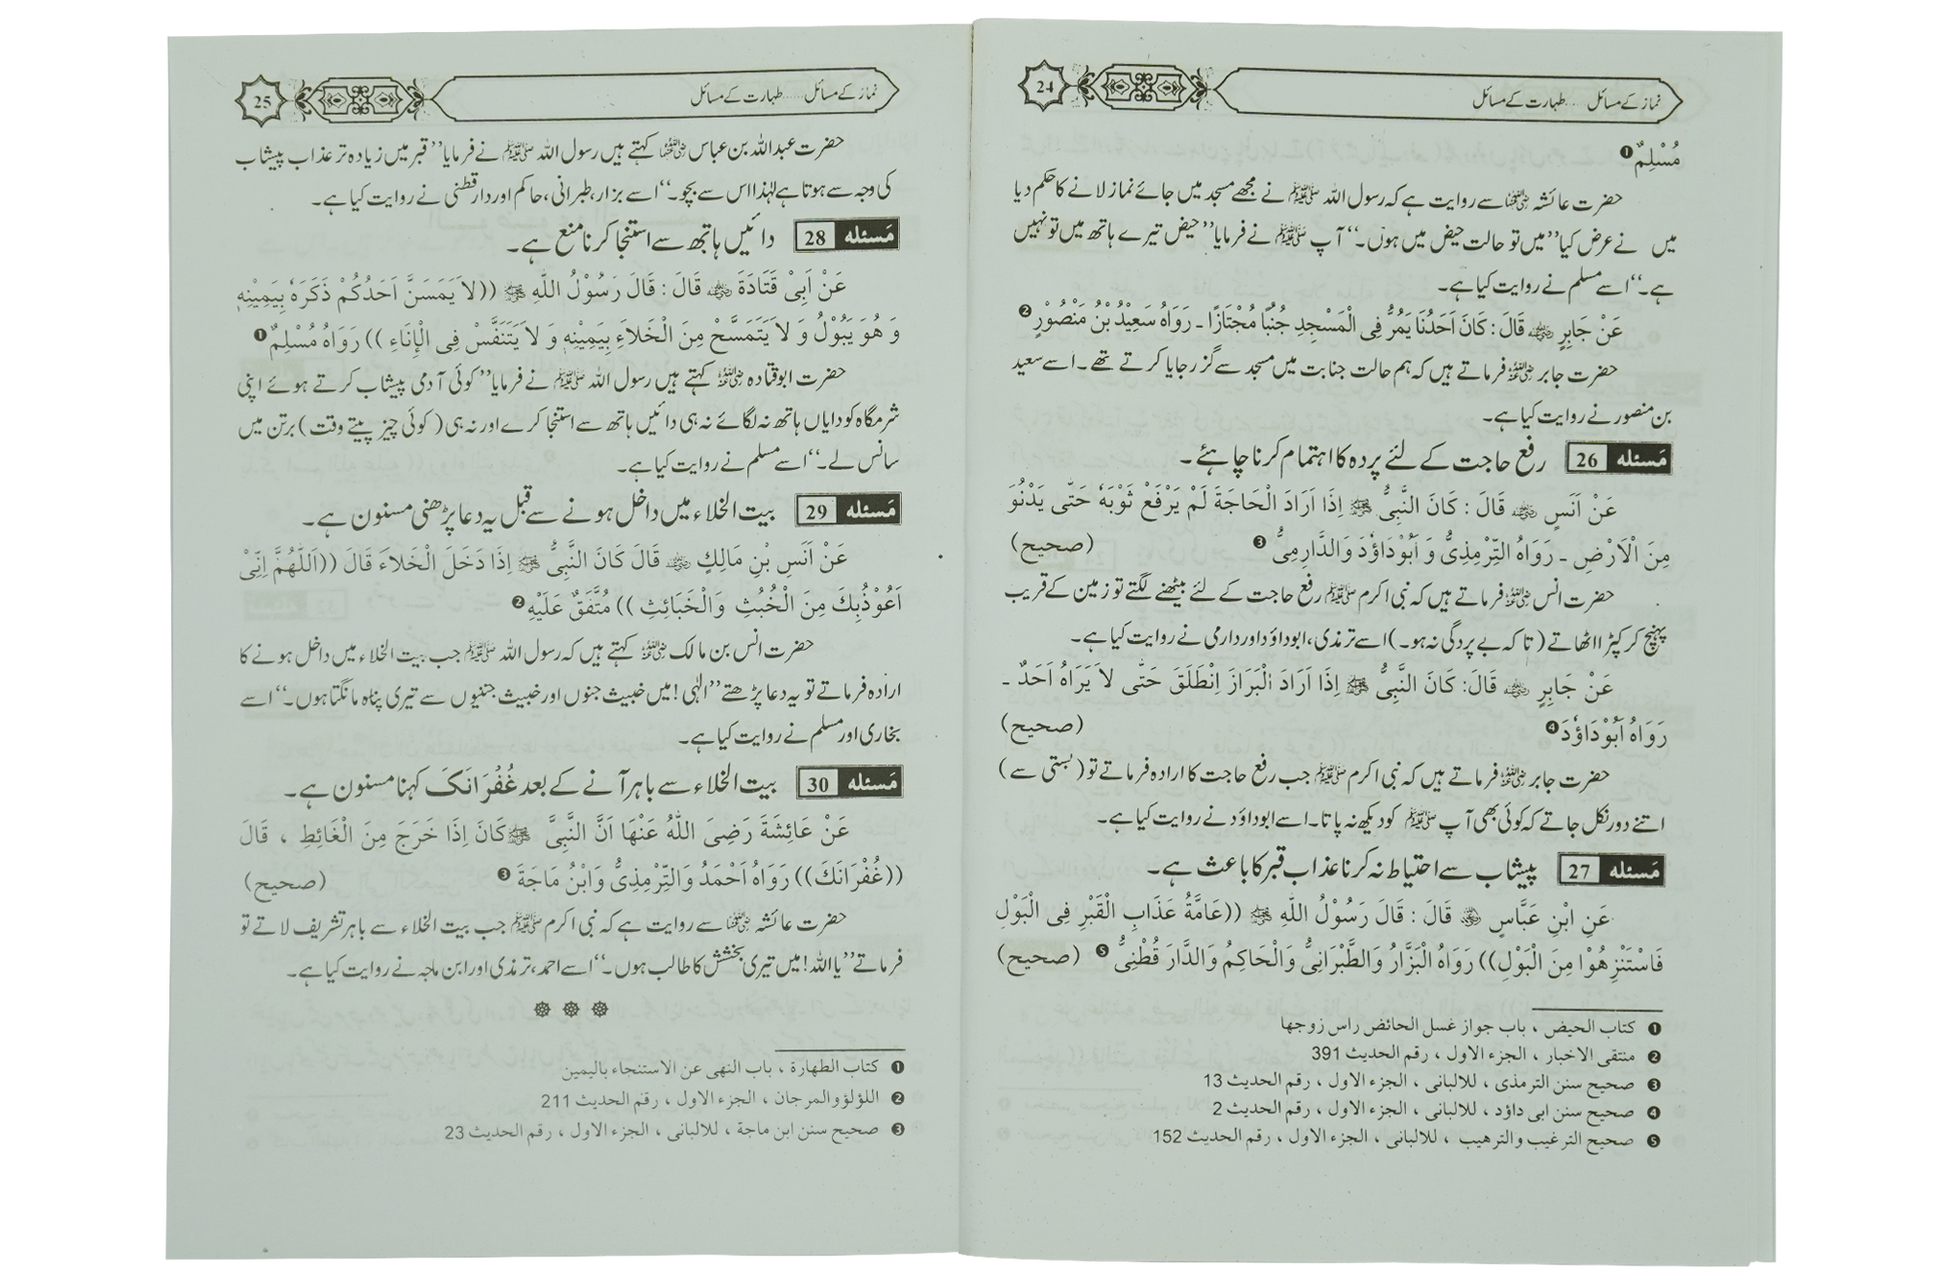 نماز کے مسائل ..... طہارت کے مسائل
24
مُسْلِمٌ ❶
حضرت عائشہ رضی اللہ عنہا سے روایت ہے کہ رسول اللہ ﷺ نے مجھے مسجد میں جائے نماز لانے کا حکم دیا
میں نے عرض کیا’’میں تو حالت حیض میں ہوں۔‘‘ آپ ﷺ نے فرمایا’’حیض تیرے ہاتھ میں تو نہیں
ہے۔‘‘ اسے مسلم نے روایت کیا ہے۔
عَنْ جَابِرٍ رضی اللہ عنہ قَالَ : كَانَ اَحَدُنَا يَمُرُّ فِى الْمَسْجِدِ جُنُبًا مُجْتَازًا ـ رَوَاهُ سَعِيْدُ بْنُ مَنْصُوْرٍ ❷
حضرت جابر رضی اللہ عنہ فرماتے ہیں کہ ہم حالت جنابت میں مسجد سے گزر جایا کرتے تھے۔ اسے سعید
بن منصور نے روایت کیا ہے۔
مَسئله 26 رفع حاجت کے لئے پردہ کا اہتمام کرنا چاہئے۔
عَنْ اَنَسٍ رضی اللہ عنہ قَالَ : كَانَ النَّبِىُّ ﷺ اِذَا اَرَادَ الْحَاجَةَ لَمْ يَرْفَعْ ثَوْبَهٗ حَتّٰى يَدْنُوَ
مِنَ الْاَرْضِ ـ رَوَاهُ التِّرْمِذِىُّ وَ اَبُوْدَاوُدَ وَالدَّارِمِىُّ ❸ (صحيح)
حضرت انس رضی اللہ عنہ فرماتے ہیں کہ نبی اکرم ﷺ رفع حاجت کے لئے بیٹھنے لگتے تو زمین کے قریب
پہنچ کر کپڑا اٹھاتے (تاکہ بے پردگی نہ ہو۔) اسے ترمذی، ابوداؤد اور دارمی نے روایت کیا ہے۔
عَنْ جَابِرٍ رضی اللہ عنہ قَالَ: كَانَ النَّبِىُّ ﷺ اِذَا اَرَادَ الْبَرَازَ اِنْطَلَقَ حَتّٰى لاَ يَرَاهُ اَحَدٌ ـ
رَوَاهُ اَبُوْدَاؤُدَ ❹ (صحيح)
حضرت جابر رضی اللہ عنہ فرماتے ہیں کہ نبی اکرم ﷺ جب رفع حاجت کا ارادہ فرماتے تو (بستی سے)
اتنے دور نکل جاتے کہ کوئی بھی آپ ﷺ کو دیکھ نہ پاتا۔ اسے ابوداؤد نے روایت کیا ہے۔
مَسئله 27 پیشاب سے احتیاط نہ کرنا عذاب قبر کا باعث ہے۔
عَنِ ابْنِ عَبَّاسٍ رضی اللہ عنہ قَالَ : قَالَ رَسُوْلُ اللّٰهِ ﷺ ((عَامَّةُ عَذَابِ الْقَبْرِ فِى الْبَوْلِ
فَاسْتَنْزِهُوْا مِنَ الْبَوْلِ)) رَوَاهُ الْبَزَّارُ وَالطَّبْرَانِىُّ وَالْحَاكِمُ وَالدَّارَ قُطْنِىُّ ❺ (صحيح)
❶ كتاب الحيض ، باب جواز غسل الحائض راس زوجها
❷ منتقى الاخبار ، الجزء الاول ، رقم الحديث 391
❸ صحيح سنن الترمذى ، للالبانى ، الجزء الاول ، رقم الحديث 13
❹ صحيح سنن ابى داؤد ، للالبانى ، الجزء الاول ، رقم الحديث 2
❺ صحيح الترغيب والترهيب ، للالبانى ، الجزء الاول ، رقم الحديث 152
نماز کے مسائل ..... طہارت کے مسائل
25
حضرت عبداللہ بن عباس رضی اللہ عنہما کہتے ہیں رسول اللہ ﷺ نے فرمایا’’قبر میں زیادہ تر عذاب پیشاب
کی وجہ سے ہوتا ہے لہٰذا اس سے بچو۔‘‘ اسے بزار، طبرانی، حاکم اور دارقطنی نے روایت کیا ہے۔
مَسئله 28 دائیں ہاتھ سے استنجا کرنا منع ہے۔
عَنْ اَبِىْ قَتَادَةَ رضی اللہ عنہ قَالَ : قَالَ رَسُوْلُ اللّٰهِ ﷺ ((لاَ يَمَسَنَّ اَحَدُكُمْ ذَكَرَهٗ بِيَمِيْنِهٖ
وَ هُوَ يَبُوْلُ وَ لاَ يَتَمَسَّحْ مِنَ الْخَلاَءِ بِيَمِيْنِهٖ وَ لاَ يَتَنَفَّسْ فِى الْإِنَاءِ )) رَوَاهُ مُسْلِمٌ ❶
حضرت ابوقتادہ رضی اللہ عنہ کہتے ہیں رسول اللہ ﷺ نے فرمایا’’کوئی آدمی پیشاب کرتے ہوئے اپنی
شرمگاہ کو دایاں ہاتھ نہ لگائے نہ ہی دائیں ہاتھ سے استنجا کرے اور نہ ہی (کوئی چیز پیتے وقت) برتن میں
سانس لے۔‘‘ اسے مسلم نے روایت کیا ہے۔
مَسئله 29 بیت الخلاء میں داخل ہونے سے قبل یہ دعا پڑھنی مسنون ہے۔
عَنْ اَنَسِ بْنِ مَالِكٍ رضی اللہ عنہ قَالَ كَانَ النَّبِىُّ ﷺ اِذَا دَخَلَ الْخَلاَءَ قَالَ ((اَللّٰهُمَّ اِنِّىْ
اَعُوْذُبِكَ مِنَ الْخُبُثِ وَالْخَبَائِثِ )) مُتَّفَقٌ عَلَيْهِ ❷
حضرت انس بن مالک رضی اللہ عنہ کہتے ہیں کہ رسول اللہ ﷺ جب بیت الخلاء میں داخل ہونے کا
ارادہ فرماتے تو یہ دعا پڑھتے ’’الٰہی! میں خبیث جنوں اور خبیث جننیوں سے تیری پناہ مانگتا ہوں۔‘‘ اسے
بخاری اور مسلم نے روایت کیا ہے۔
مَسئله 30 بیت الخلاء سے باہر آنے کے بعد غُفْرَانَكَ کہنا مسنون ہے۔
عَنْ عَائِشَةَ رَضِىَ اللّٰهُ عَنْهَا اَنَّ النَّبِىَّ ﷺ كَانَ اِذَا خَرَجَ مِنَ الْغَائِطِ ، قَالَ
((غُفْرَانَكَ)) رَوَاهُ اَحْمَدُ وَالتِّرْمِذِىُّ وَابْنُ مَاجَةَ ❸ (صحيح)
حضرت عائشہ رضی اللہ عنہا سے روایت ہے کہ نبی اکرم ﷺ جب بیت الخلاء سے باہر تشریف لاتے تو
فرماتے ’’یا اللہ! میں تیری بخشش کا طالب ہوں۔‘‘ اسے احمد، ترمذی اور ابن ماجہ نے روایت کیا ہے۔
❶ كتاب الطهارة ، باب النهى عن الاستنجاء باليمين
❷ اللؤلؤ والمرجان ، الجزء الاول ، رقم الحديث 211
❸ صحيح سنن ابن ماجة ، للالبانى ، الجزء الاول ، رقم الحديث 23